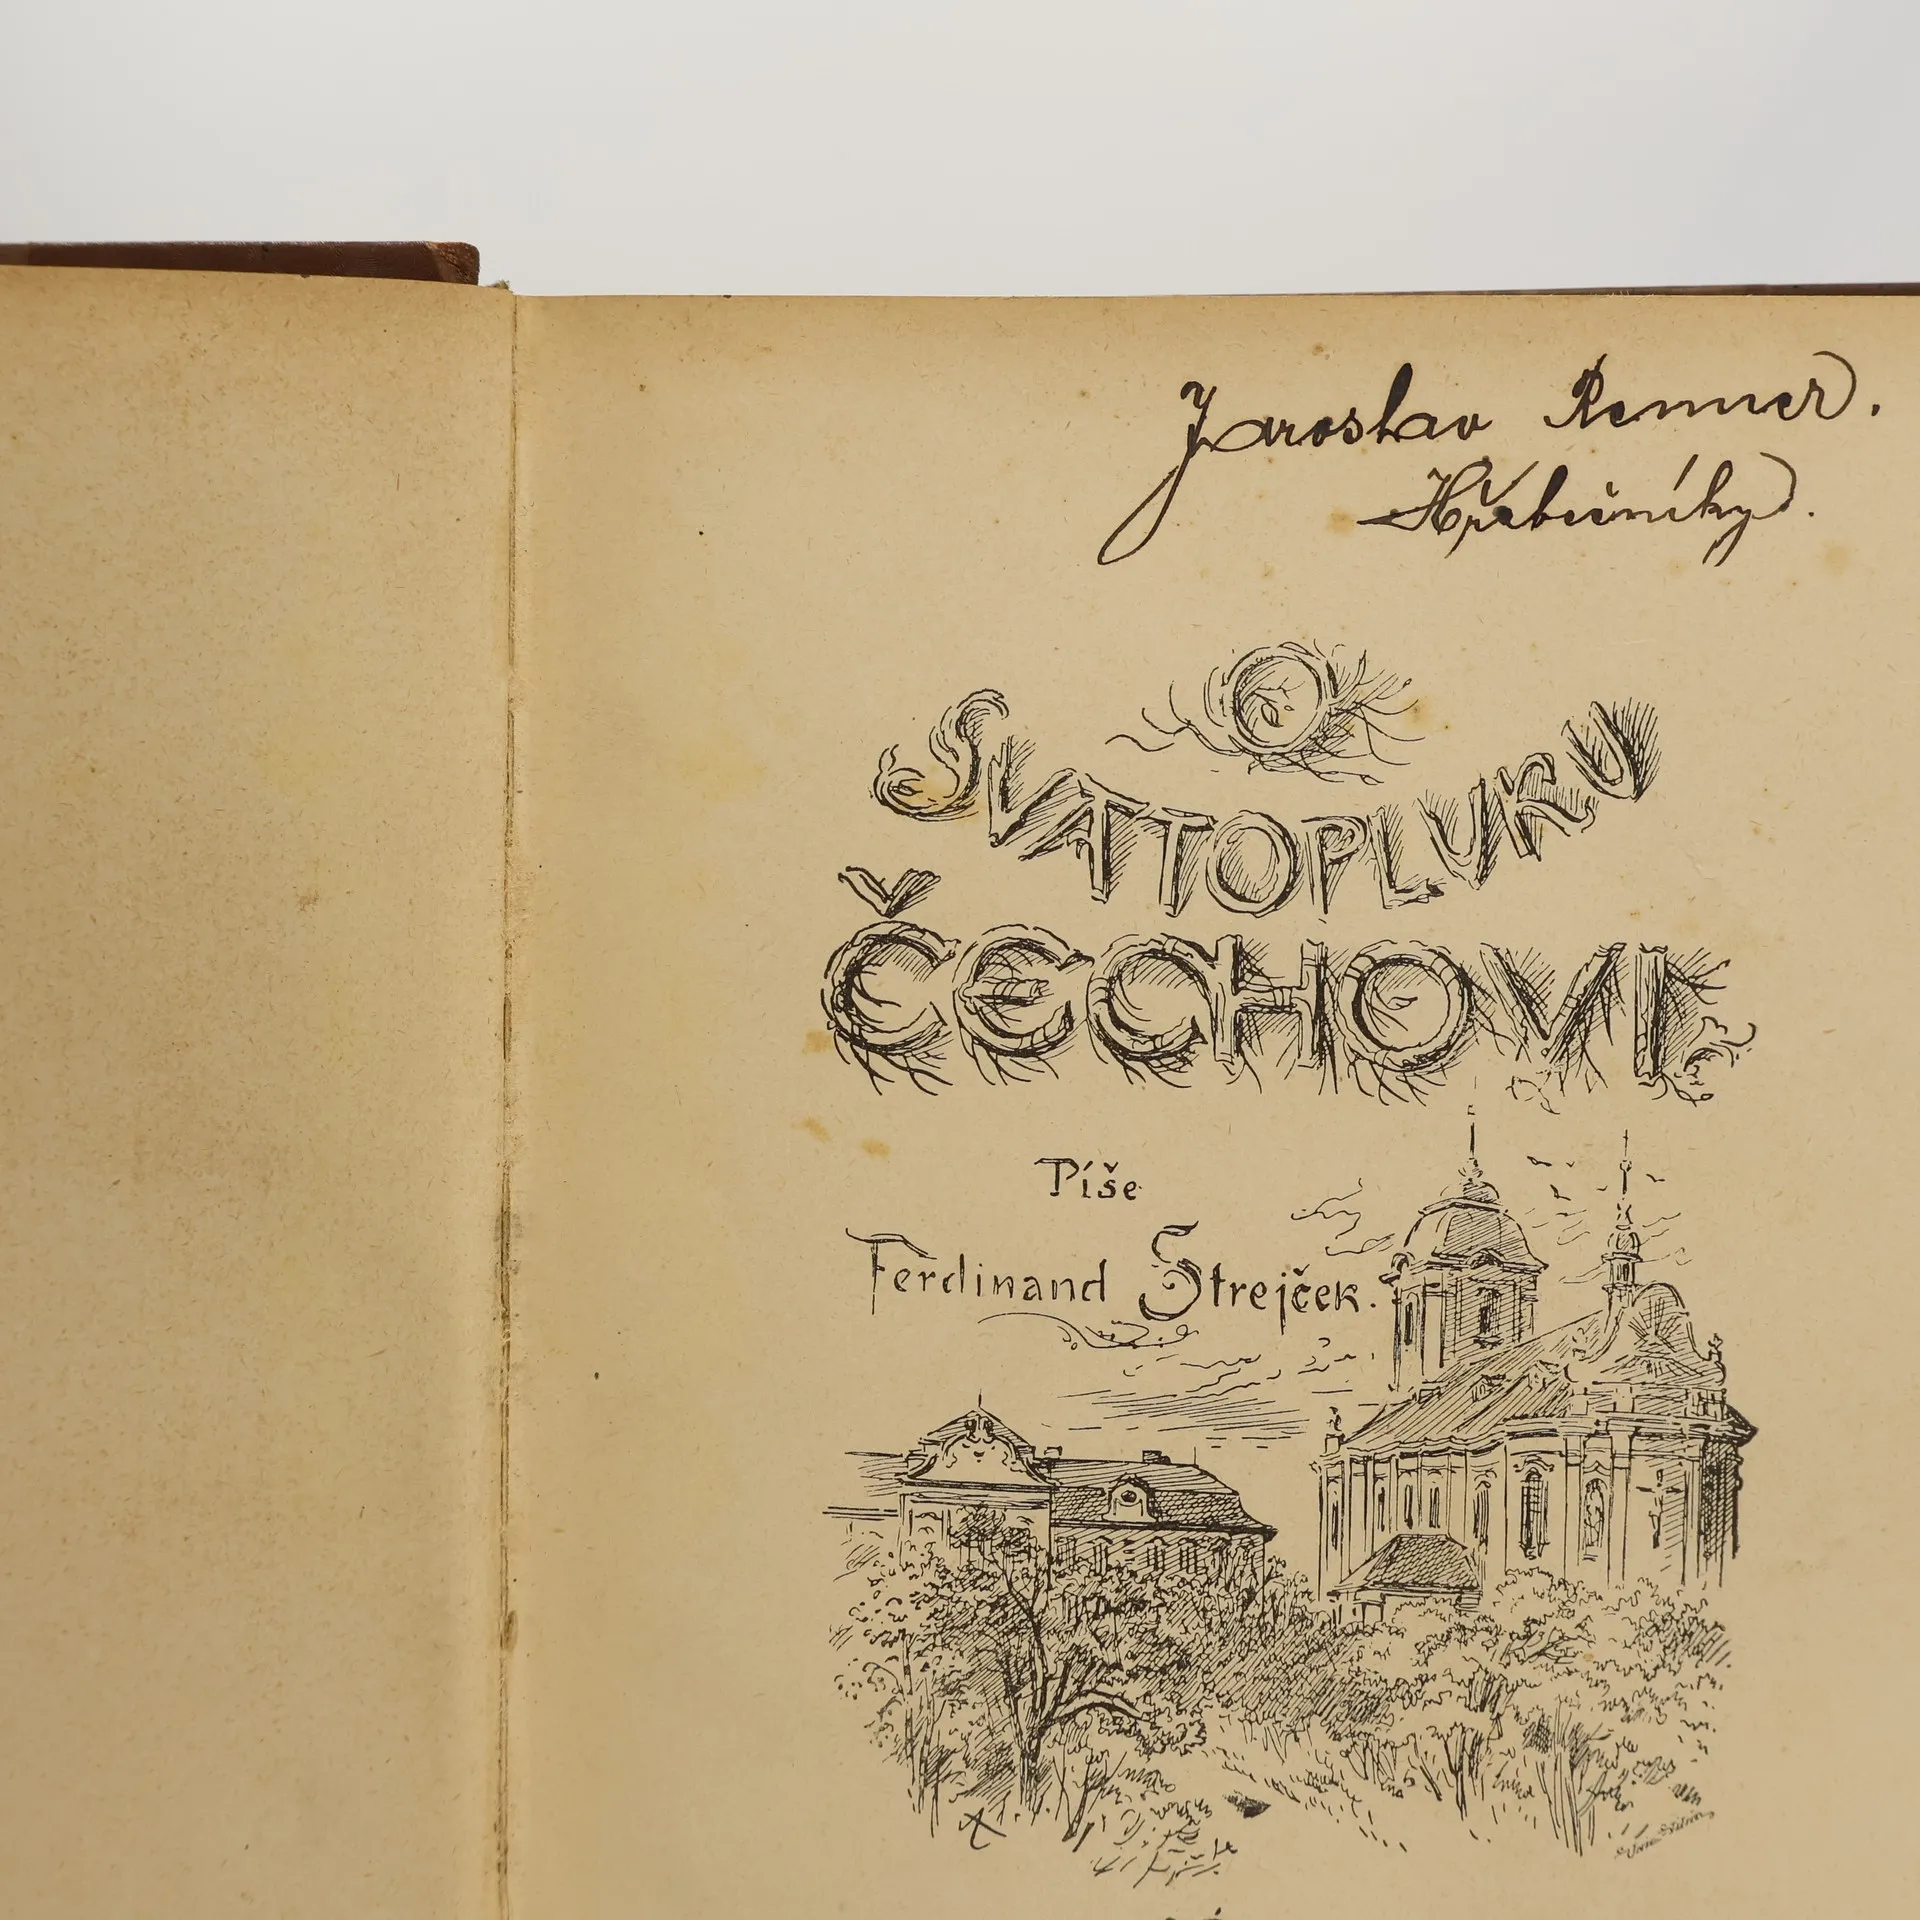 Jaroslav Renner.
Hřebečníky.
O
SVATOPLUKU
ČECHOVI
Píše
Ferdinand Strejček.